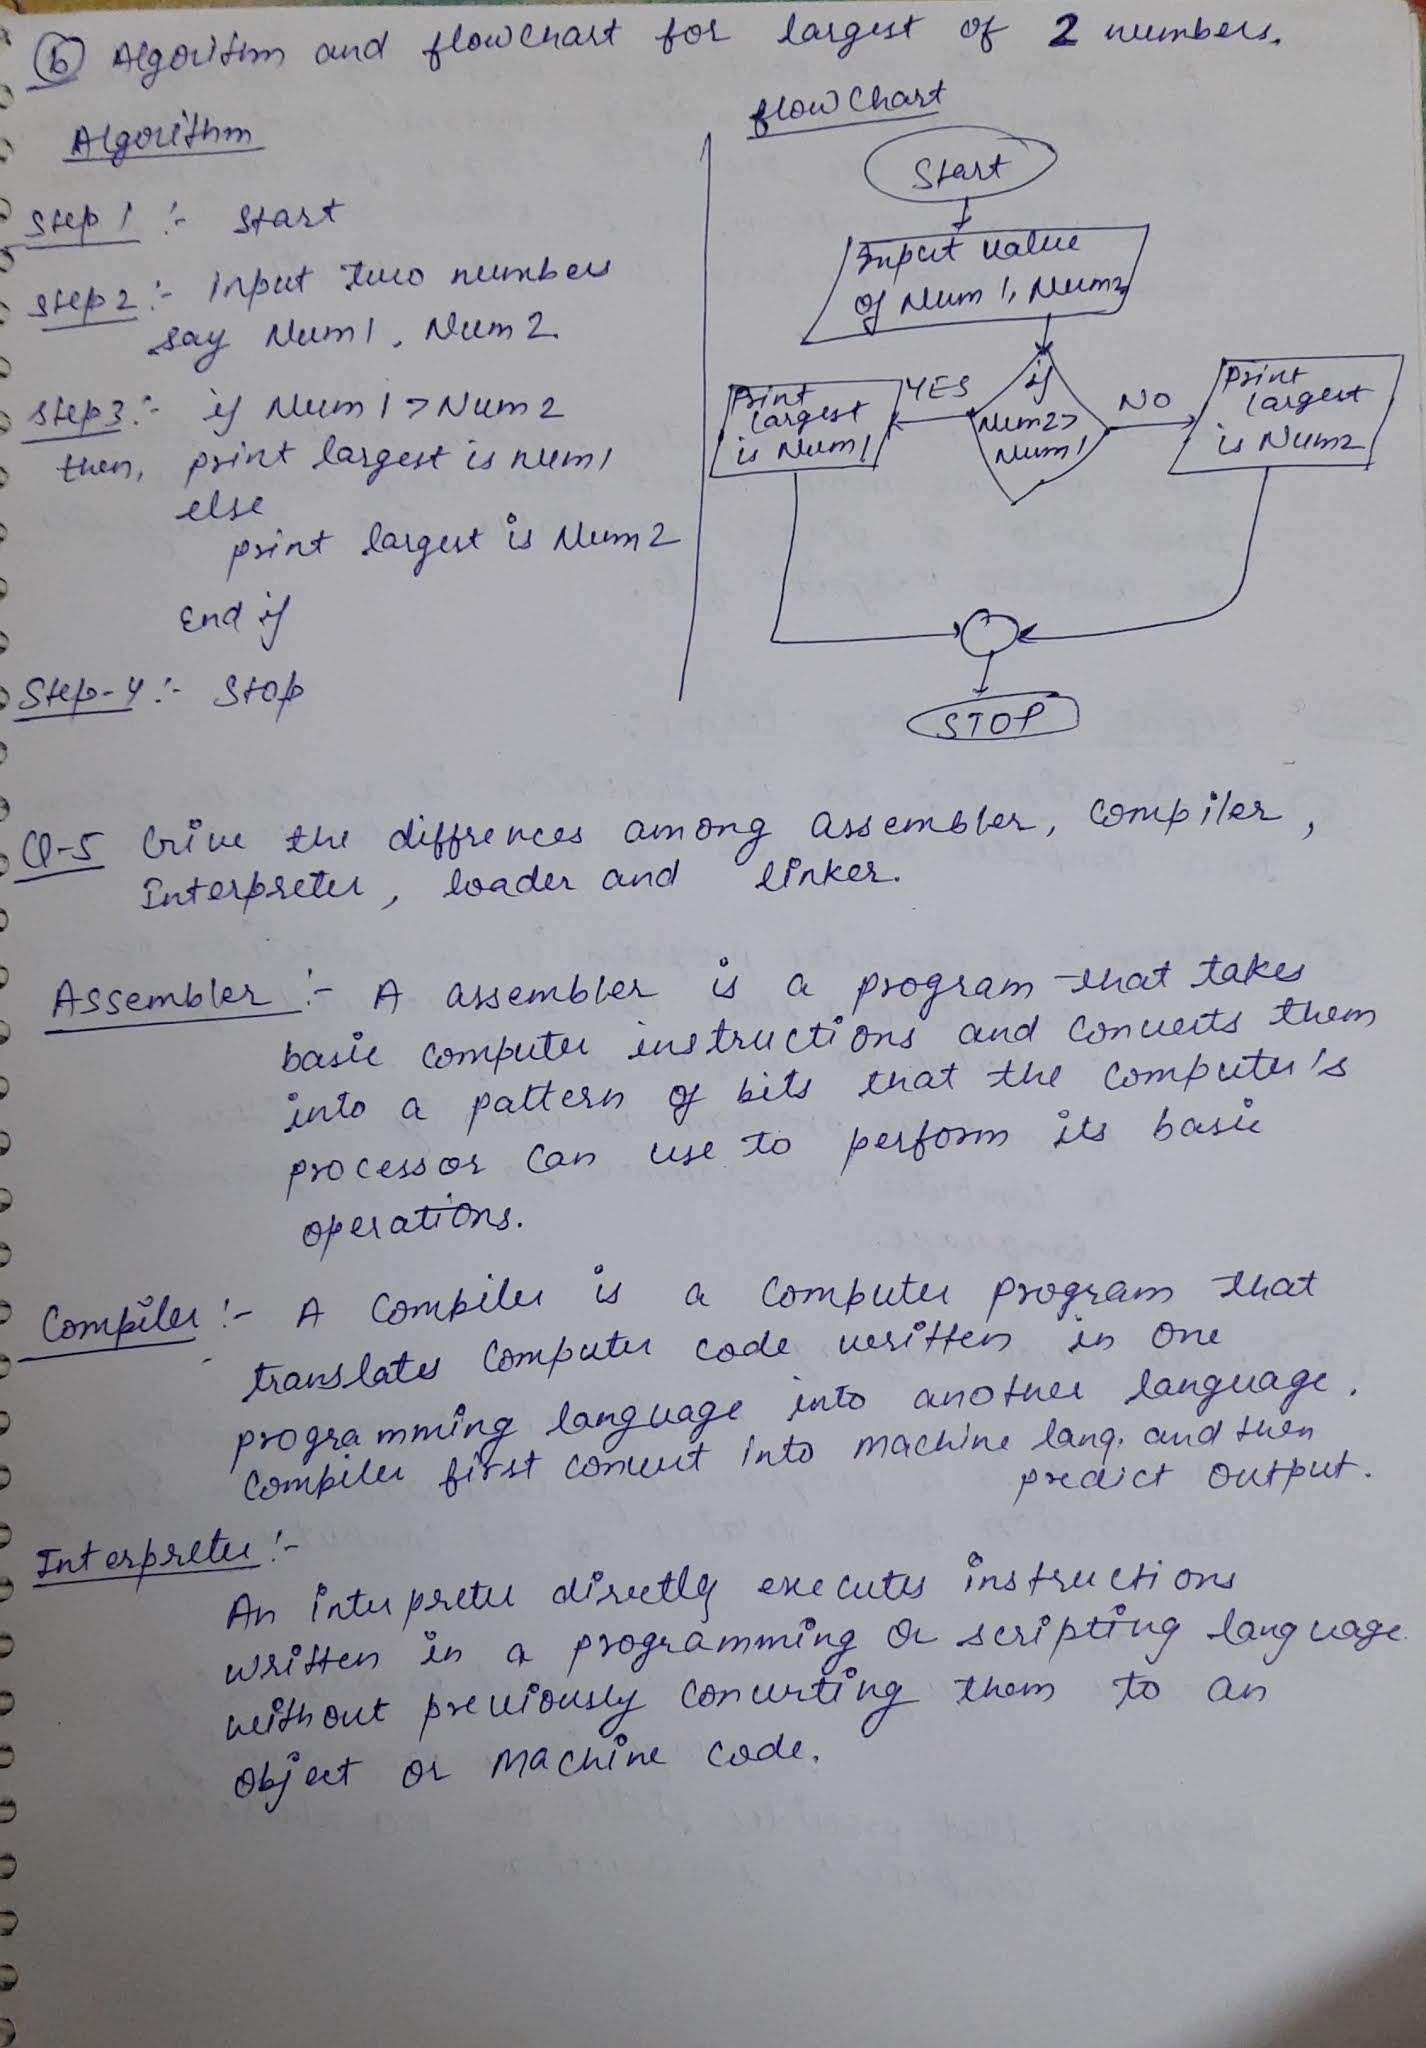 (b) Algorithm and flowchart for largest of 2 numbers.
Algorithm
Step 1 :- Start
Step 2 :- input two numbers
say Num1, Num2.
Step 3 :- if Num1 > Num2
then, print largest is num1
else
print largest is Num2
End if
Step-4 :- Stop
flowchart
Start
Input value
of Num1, Num2
if
Num2>
Num1
YES
Print
largest
is Num1
NO
print
largest
is Num2
STOP
Q-5 Give the diffrences among assembler, compiler,
Interpreter, loader and linker.
Assembler :- A assembler is a program that takes
basic computer instructions and converts them
into a pattern of bits that the computer's
processor can use to perform its basic
operations.
Compiler :- A compiler is a computer program that
translates computer code written in one
programming language into another language.
compiler first convert into machine lang. and then
predict output.
Interpreter :-
An interpreter directly executes instructions
written in a programming or scripting language
without previously converting them to an
object or machine code.